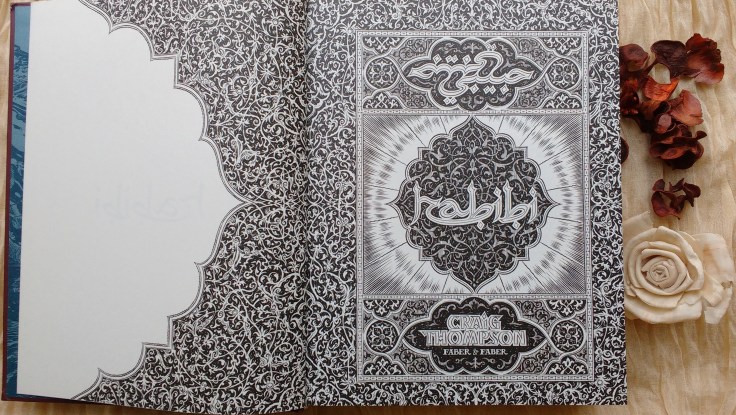 حبيبي
habibi
CRAIG
THOMPSON
FABER & FABER